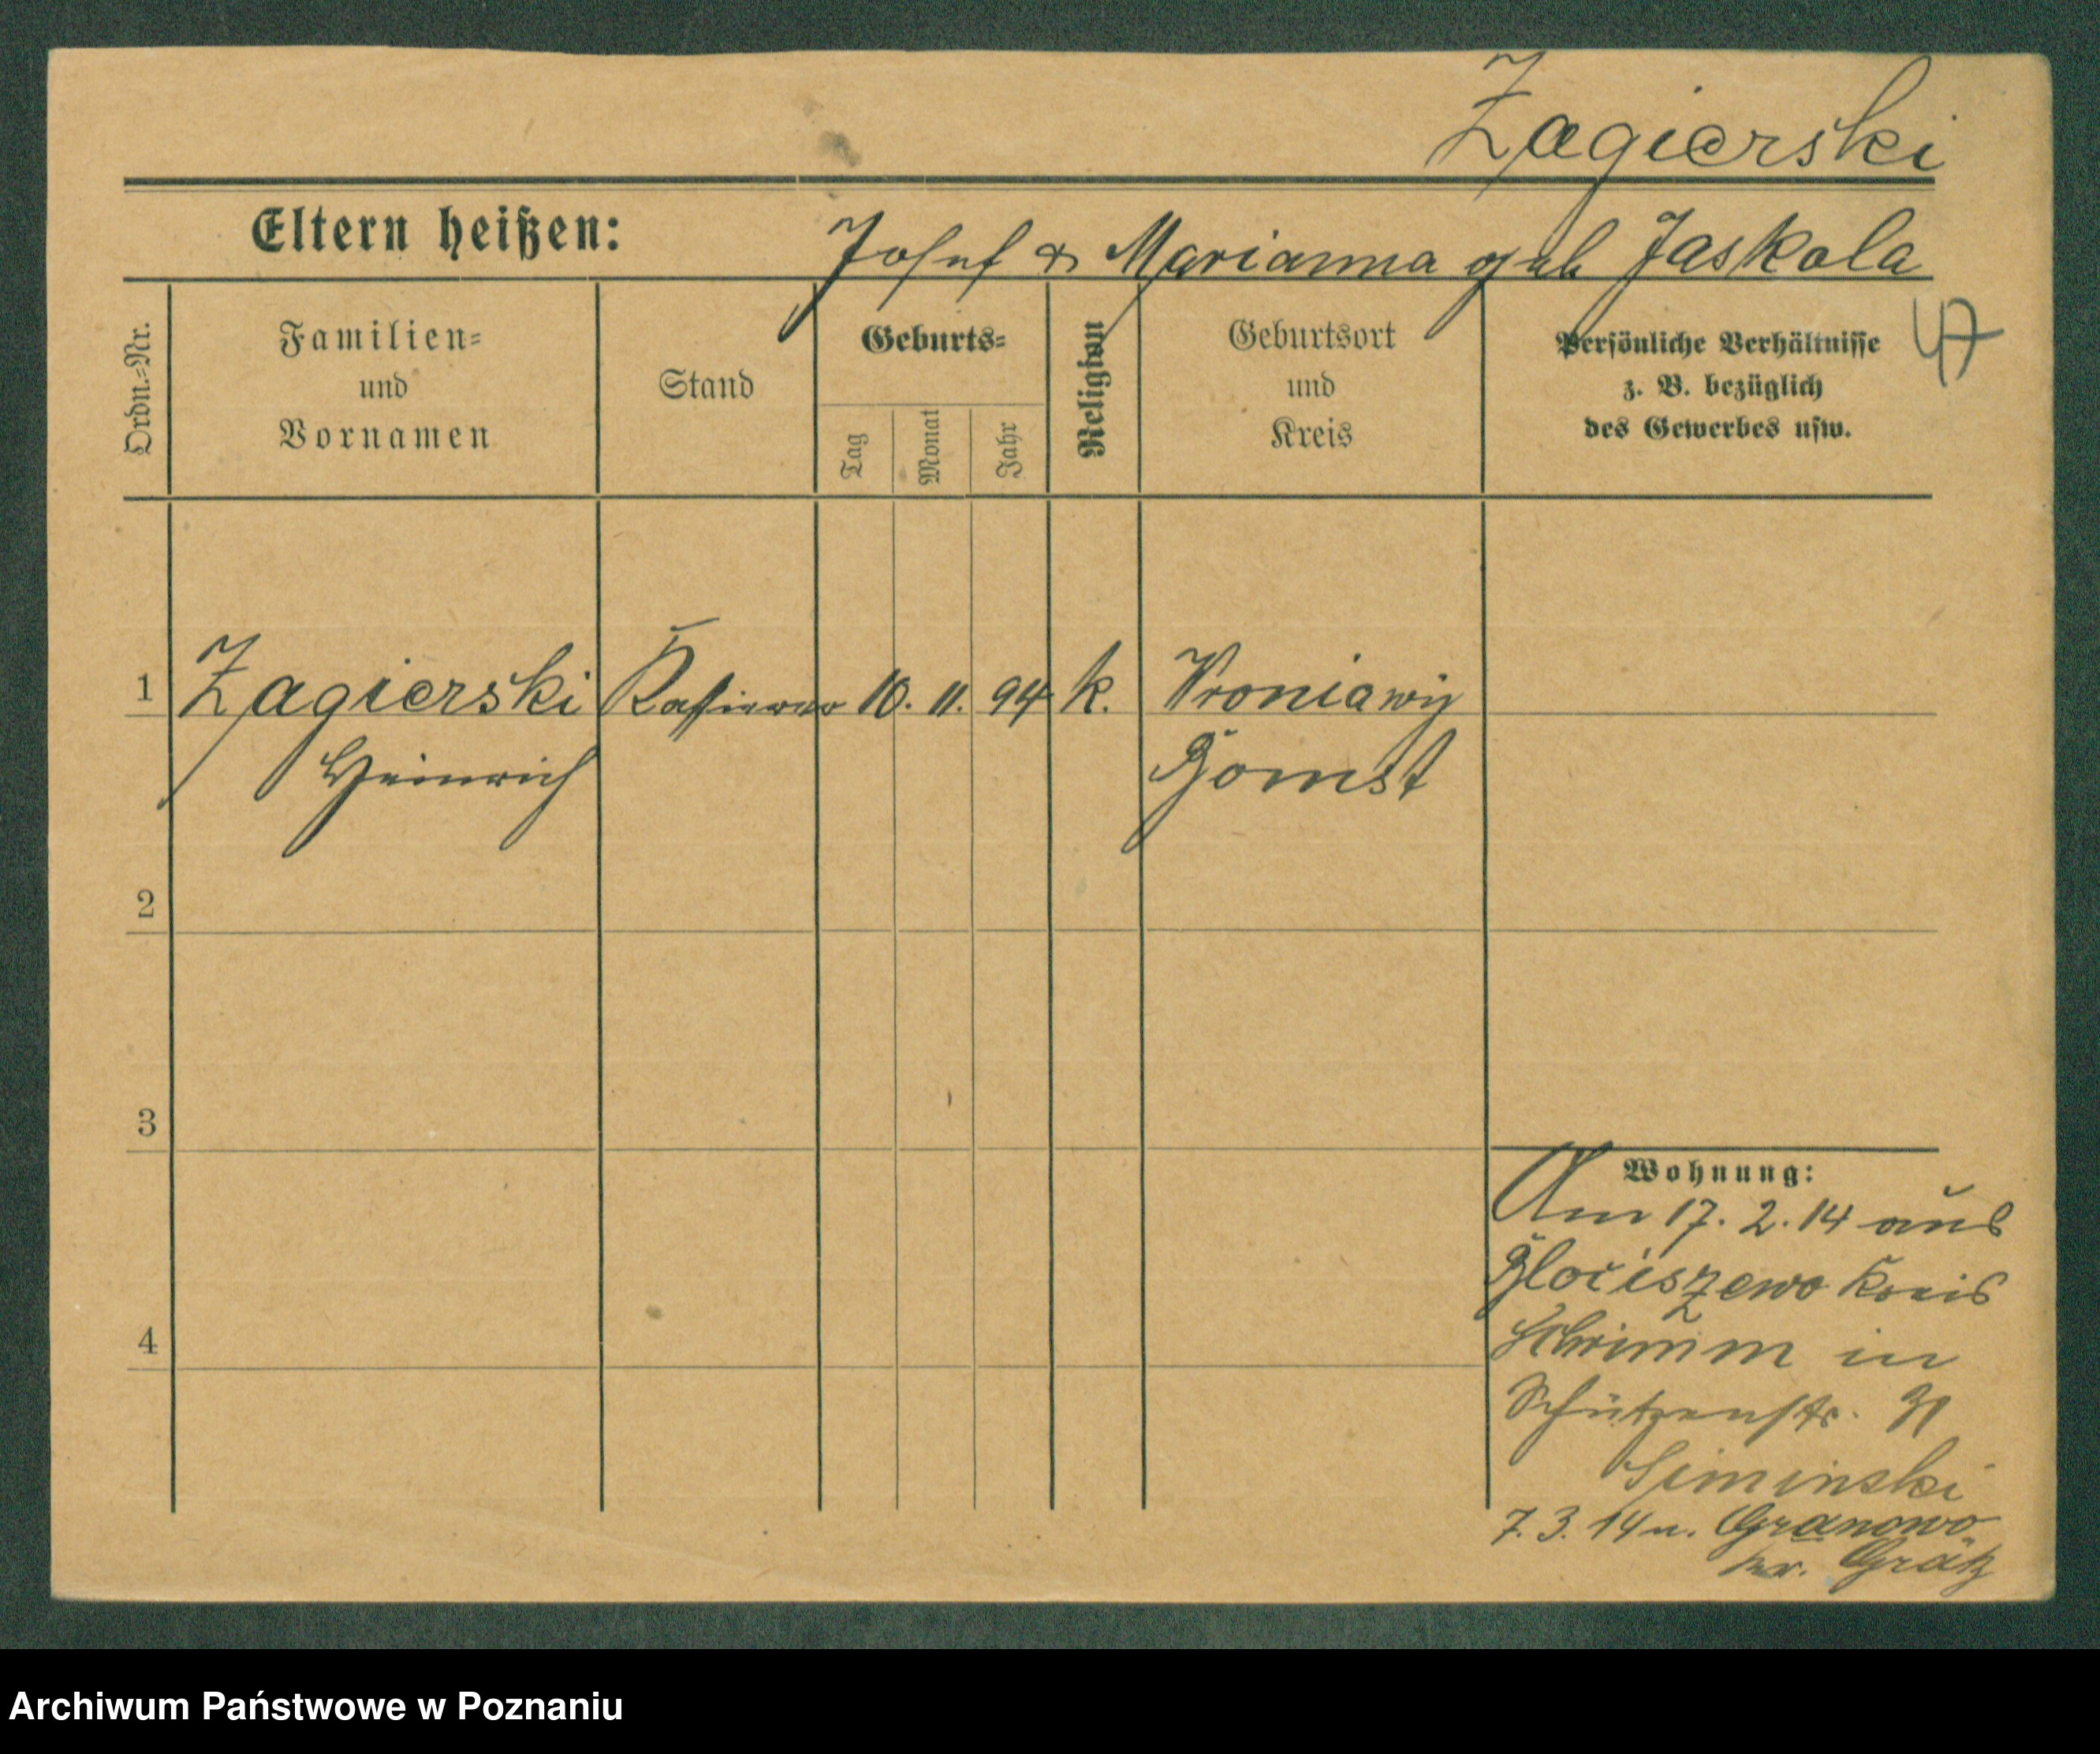 Zagierski
Eltern heißen: Josef & Marianna geb Jaskola
47
Ordn.-Nr.
Familien-
und
Vornamen
Stand
Geburts-
Tag
Monat
Jahr
Religion
Geburtsort
und
Kreis
Persönliche Verhältnisse
z. B. bezüglich
des Gewerbes usw.
1 Zagierski 10. 11. 94 k. Wroniawy
Heinrich Bomst
2
3
4
Wohnung:
Am 17. 2. 14 aus
Blociszewo Kreis
Schrimm in
Schützenstr. 31
Siminski
7. 3. 14 n. Granowo
Kr. Grätz
Archiwum Państwowe w Poznaniu